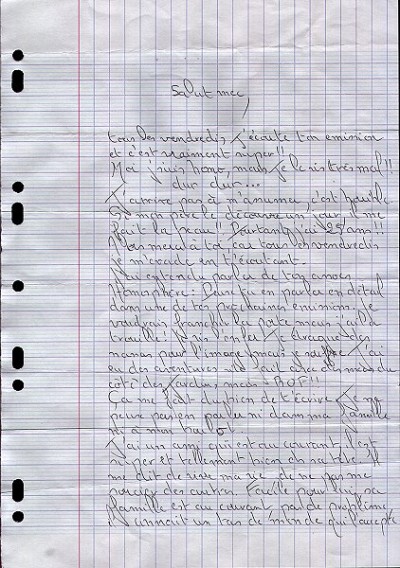 Salut mec,
tous les vendredis, j'écoute ton émission
et c'est vraiment super!!
Moi j'suis homo, mais je le vis très mal!!
dur dur...
J'arrive pas à m'assumer, c'est horrible
Si mon père le découvre un jour, il me
fait la peau!! Pourtant j'ai 25 ans!!
Alors merci à toi car tous les vendredis
je m'évade en t'écoutant.
J'ai entendu parler de ton
Homosphère: Peux tu en parler en détail
dans une de tes prochaines émissions. Je
voudrais franchir la porte mais j'ai la
trouille! Je drague des
nanas pour l'image mais je J'ai
eu des aventures des mecs du
côté des mais BOF!!
Ça me fait du bien de t'écrire. Je ne
peux pas en parler ni dans ma famille
ni à mon boulot.
J'ai un ami qui est au courant, il est
super et tellement bien ds sa tête. Il
me dit de vivre ma vie de ne pas me
soucier des autres. Facile pour lui, sa
famille est au courant pas de problème,
il connait un tas de monde qui l'accepte